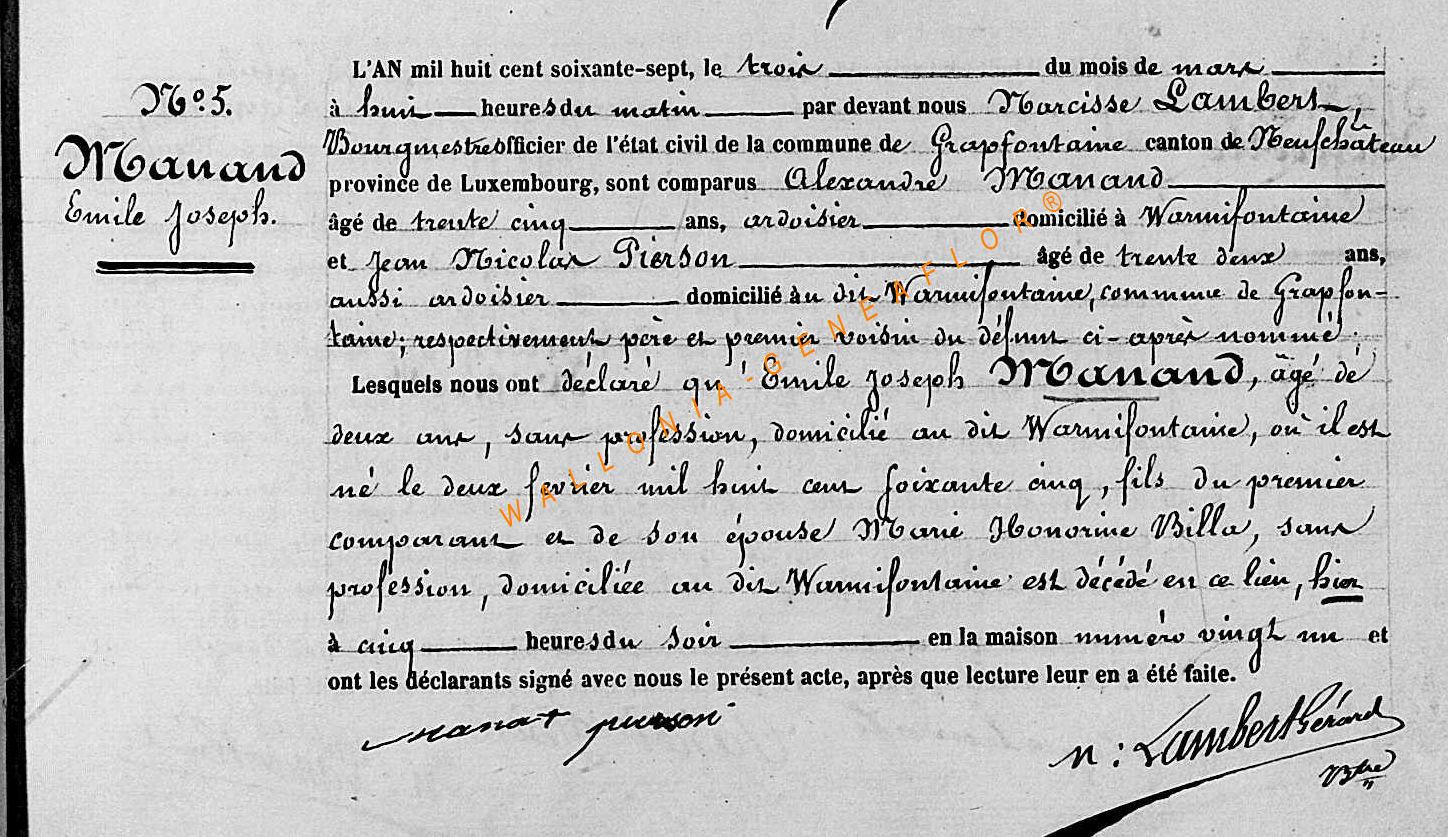 L'AN mil huit cent soixante-sept, le trois du mois de mars
N° 5.
à huit heures du matin par devant nous Narcisse Lambert,
Manand
Bourgmestre officier de l'état civil de la commune de Grapfontaine canton de Neufchâteau
province de Luxembourg, sont comparus Alexandre Manand
Emile Joseph.
âgé de trente cinq ans, ardoisier domicilié à Warmifontaine
et Jean Nicolas Pierson âgé de trente deux ans,
aussi ardoisier domicilié au dit Warmifontaine, commune de Grapfon-
taine; respectivement père et premier voisin du défunt ci-après nommé.
Lesquels nous ont déclaré qu'Emile Joseph Manand, âgé de
deux ans, sans profession, domicilié au dit Warmifontaine, où il est
né le deux fevrier mil huit cent soixante cinq, fils du premier
comparant et de son épouse Marie Honorine Billa, sans
profession, domiciliée au dit Warmifontaine est décédé en ce lieu, hier
à cinq heures du soir en la maison numéro vingt un et
ont les déclarants signé avec nous le présent acte, après que lecture leur en a été faite.
manat pierson
N: Lambert Gérard
Btre
WALLONIA-GENEAFLOR®